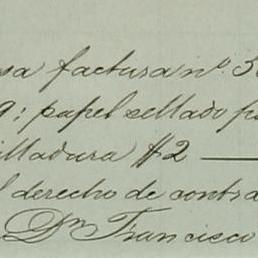 sa factura nº. 3
9; papel sellado p
illadura $2 —
l derecho de contra
Dn Francisco